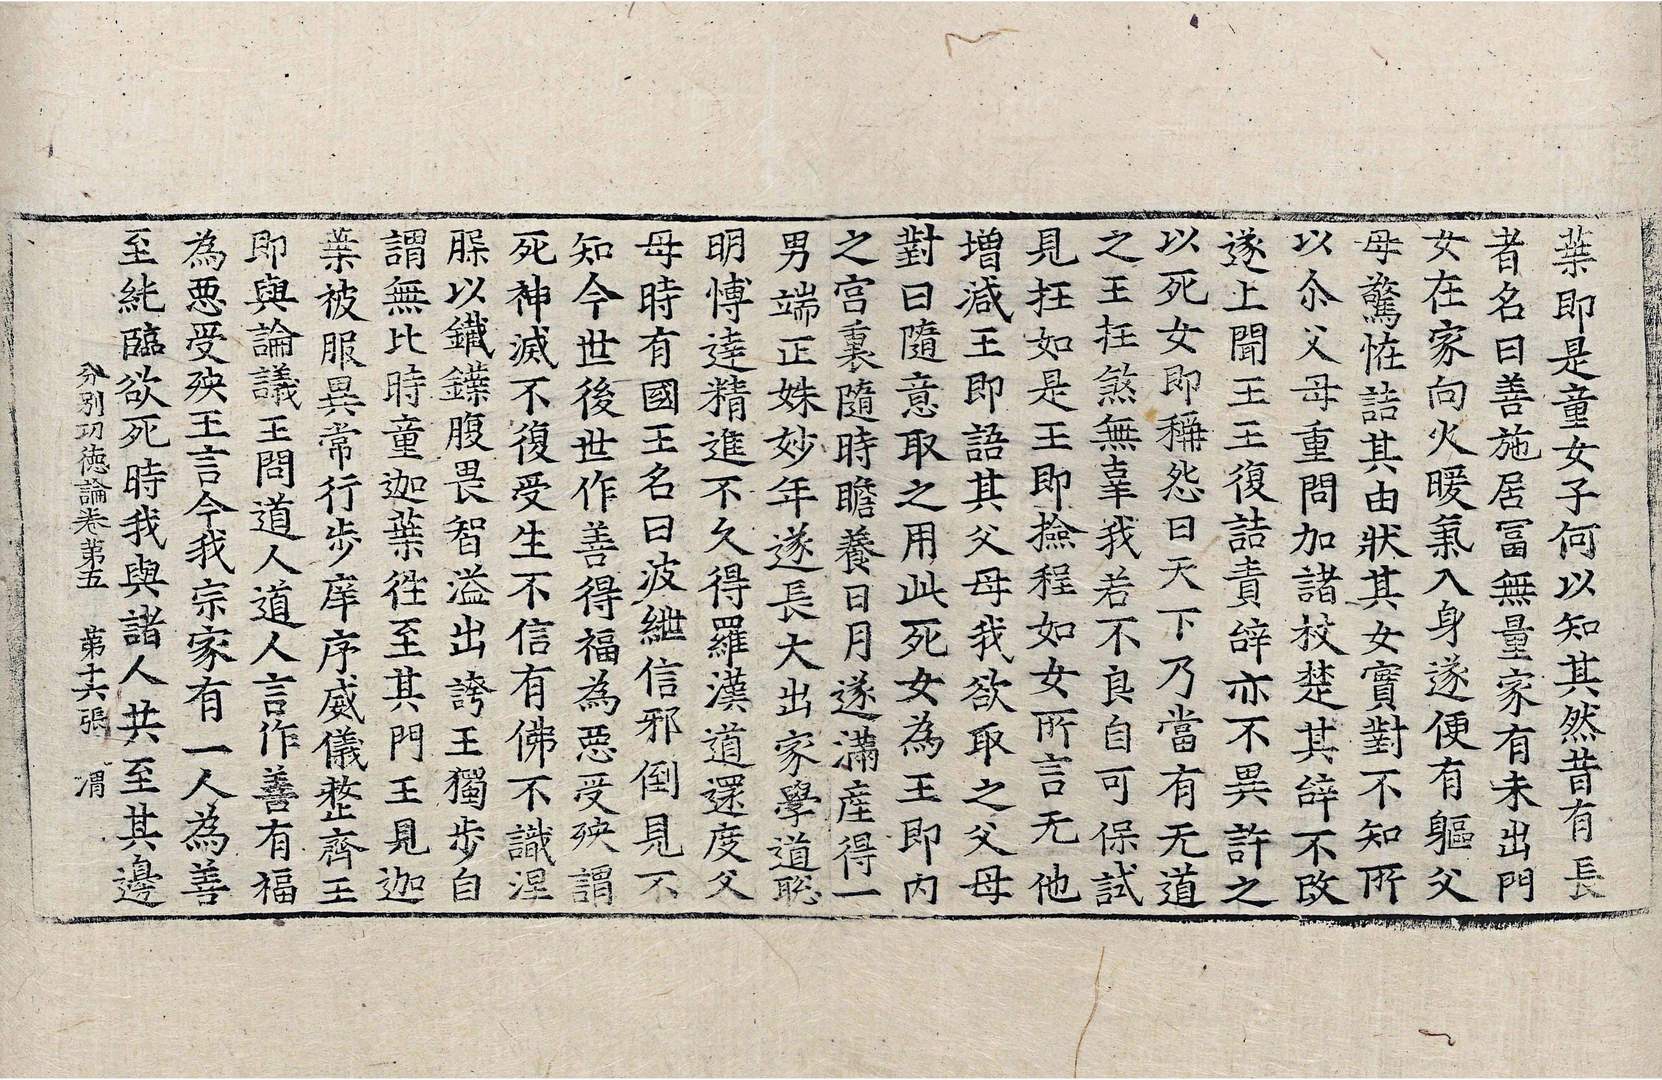 葉即是童女子何以知其然昔有長
者名曰善施居冨無量家有未出門
女在家向火暖氣入身遂便有軀父
母驚恠詰其由狀其女實對不知所
以尒父母重問加諸杖楚其辝不改
遂上聞王王復詰責辝亦不異許之
以死女即稱怨曰天下乃當有无道
之王抂煞無辜我若不良自可保試
見抂如是王即撿程如女所言无他
增減王即語其父母我欲取之父母
對曰隨意取之用此死女為王即内
之宫裏隨時瞻養日月遂滿產得一
男端正姝妙年遂長大出家學道聡
明博達精進不久得羅漢道還度父
母時有國王名曰波紲信邪倒見不
知今世後世作善得福為惡受殃謂
死神滅不復受生不信有佛不識涅
𦞦以鐵鍱腹畏智溢出誇王獨步自
謂無比時童迦葉往至其門王見迦
葉被服異常行步庠序威儀整齊王
即與論議王問道人道人言作善有福
為惡受殃王言今我宗家有一人為善
至純臨欲死時我與諸人共至其邊
分別功德論卷第五　第十六張　渭